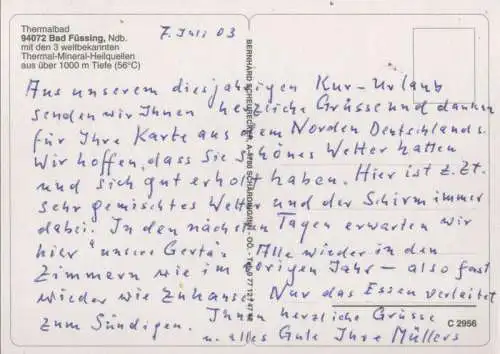 Thermalbad
94072 Bad Füssing, Ndb.
mit den 3 weltbekannten
Thermal-Mineral-Heilquellen
aus über 1000 m Tiefe (56°C)
7. Juli 03
Aus unserem diesjährigen Kur-Urlaub
senden wir Ihnen herzliche Grüsse und danken
für Ihre Karte aus dem Norden Deutschlands.
Wir hoffen, dass Sie schönes Wetter hatten
und sich gut erholt haben. Hier ist z. Zt.
sehr gemischtes Wetter und der Schirm immer
dabei. In den nächsten Tagen erwarten wir
hier "unsere Gerta". Alle wieder in den
Zimmern wie im vorigen Jahr – also fast
wieder wie Zuhause. Nur das Essen verleitet
zum Sündigen. Ihnen herzliche Grüsse
u. alles Gute Ihre Müllers
BERNHARD
C 2956